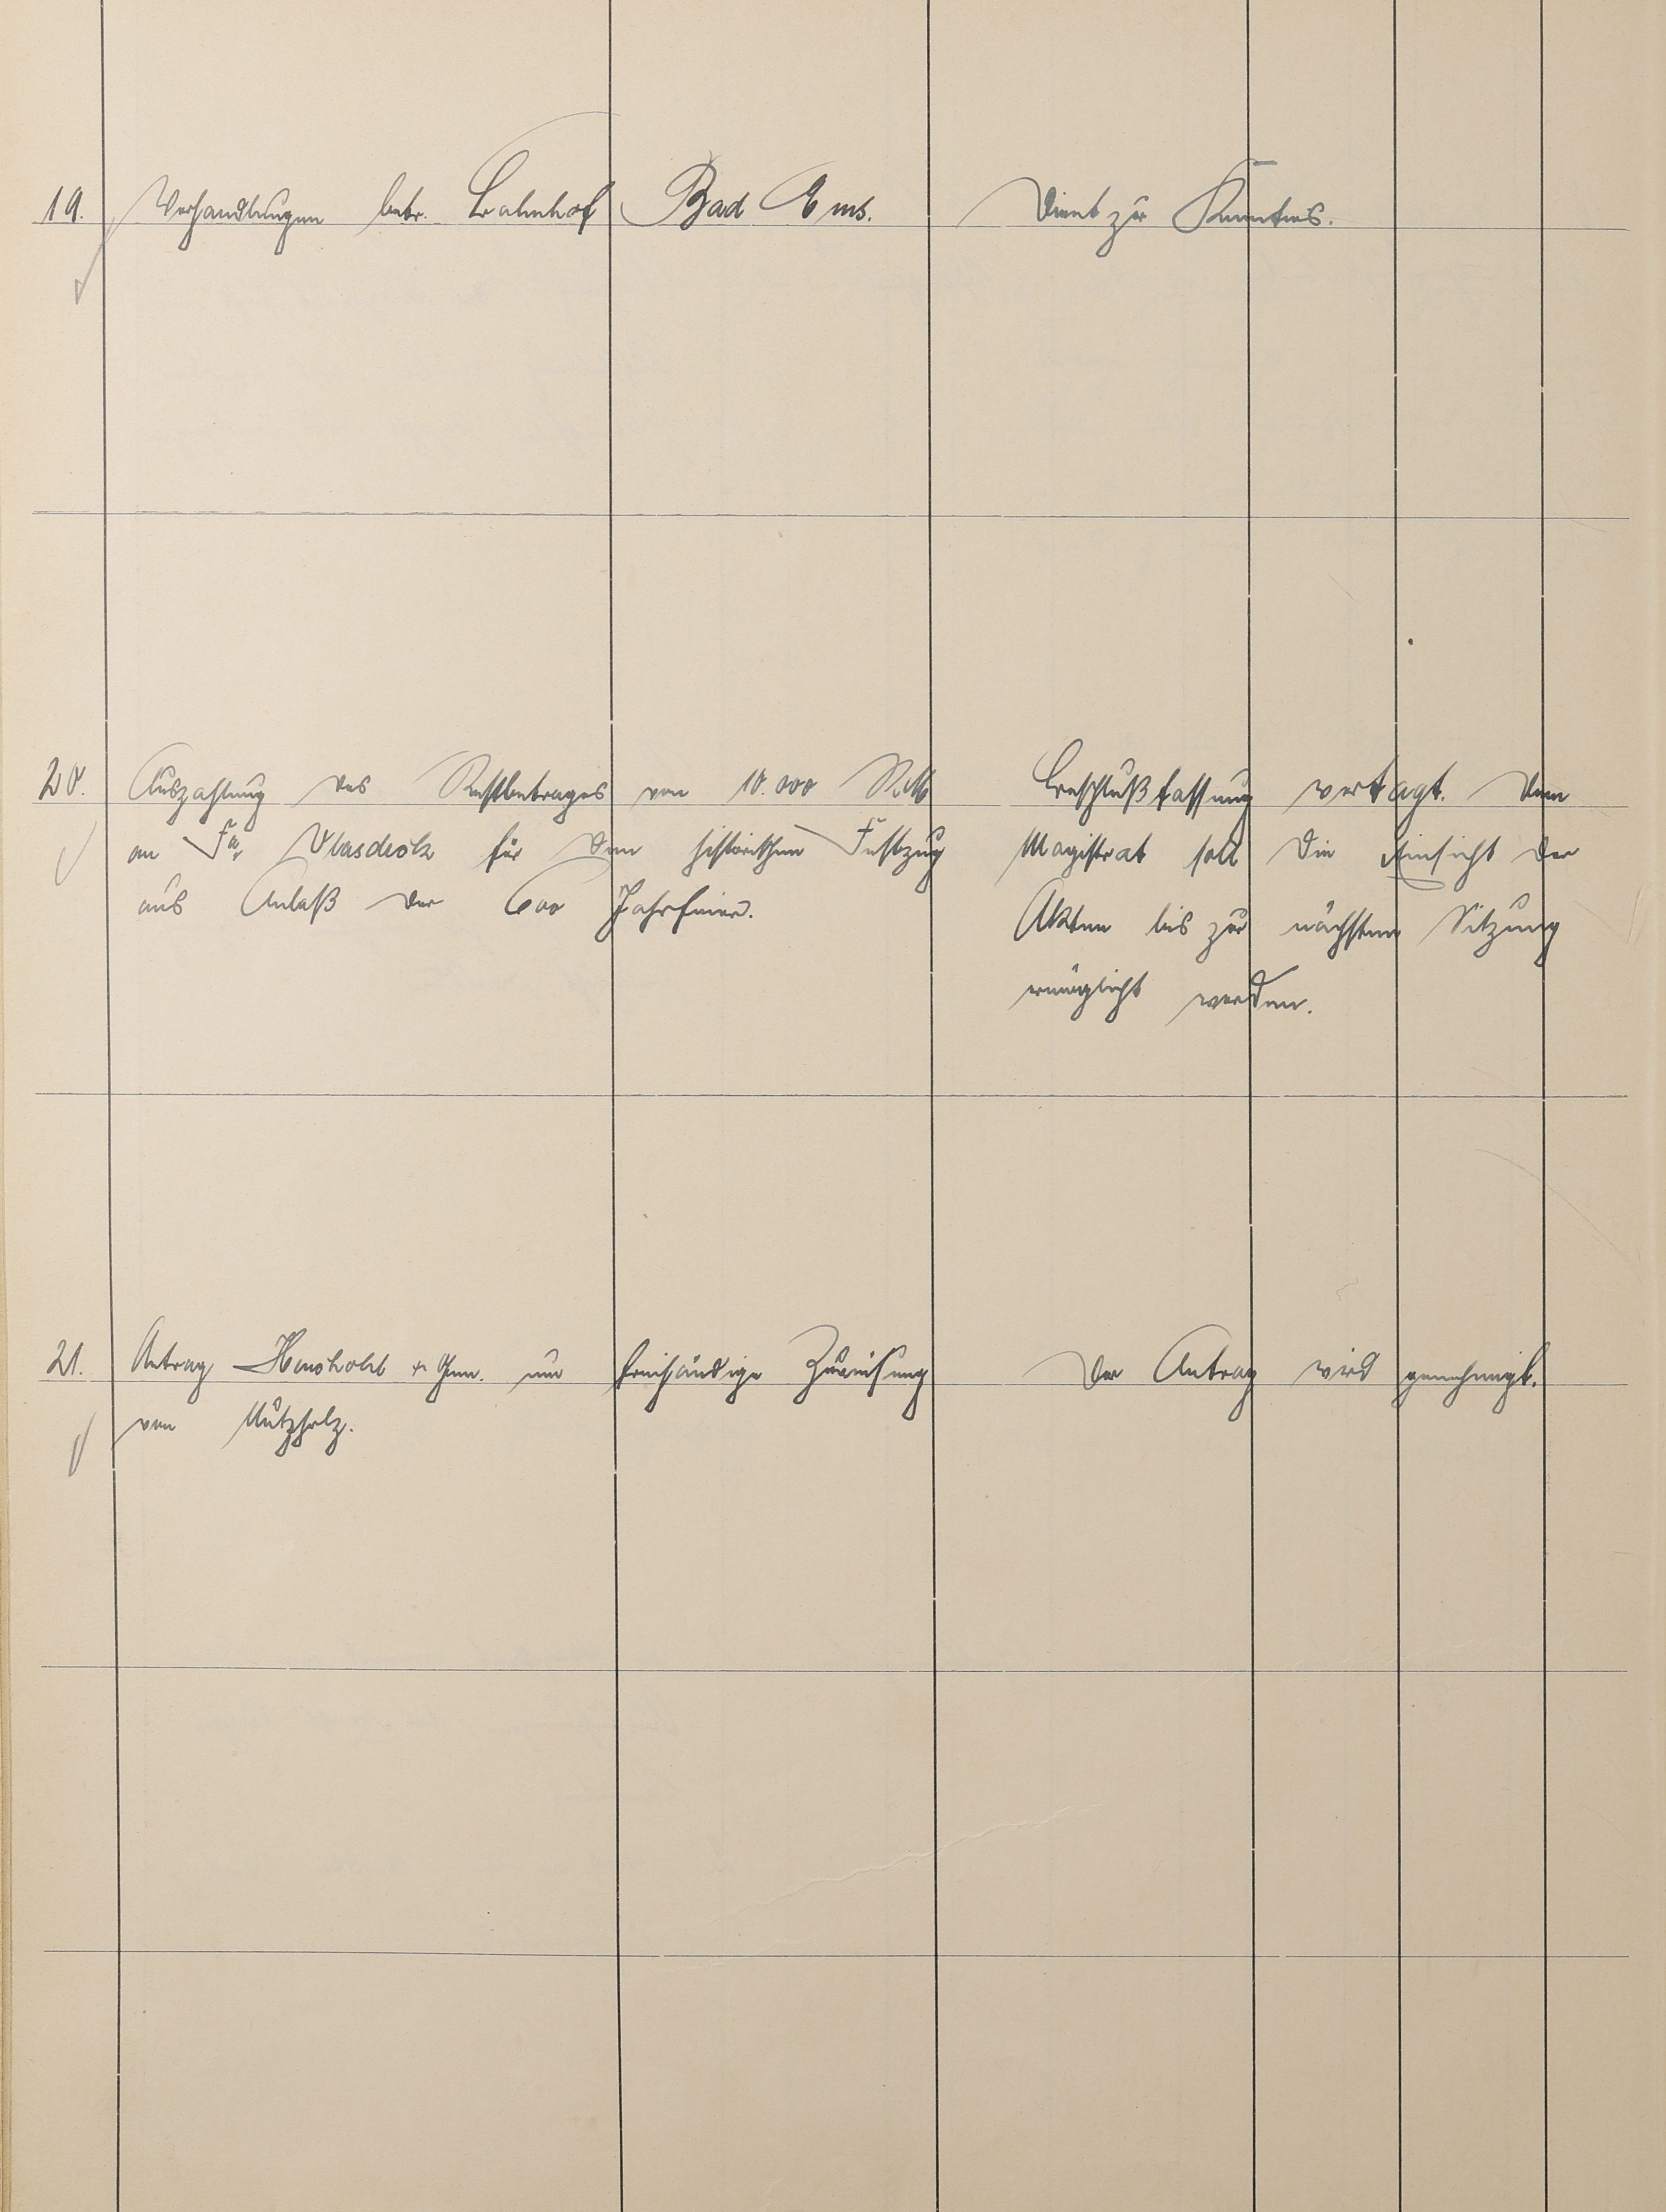 19. Verhandlungen betr. Bahnhof Bad Ems. Dient zur Kenntnis.
20. Auszahlung des Restbetrages von 10.000 RM
an Fa. für den historischen Festzug
aus Anlaß der 600 Jahrfeier.
Beschlußfassung vertagt. Dem
Magistrat soll die Einsicht der
Akten bis zur nächsten Sitzung
ermöglicht werden.
21. Antrag u. Gen. um freihändige Zuweisung
von Nutzholz.
Der Antrag wird genehmigt.